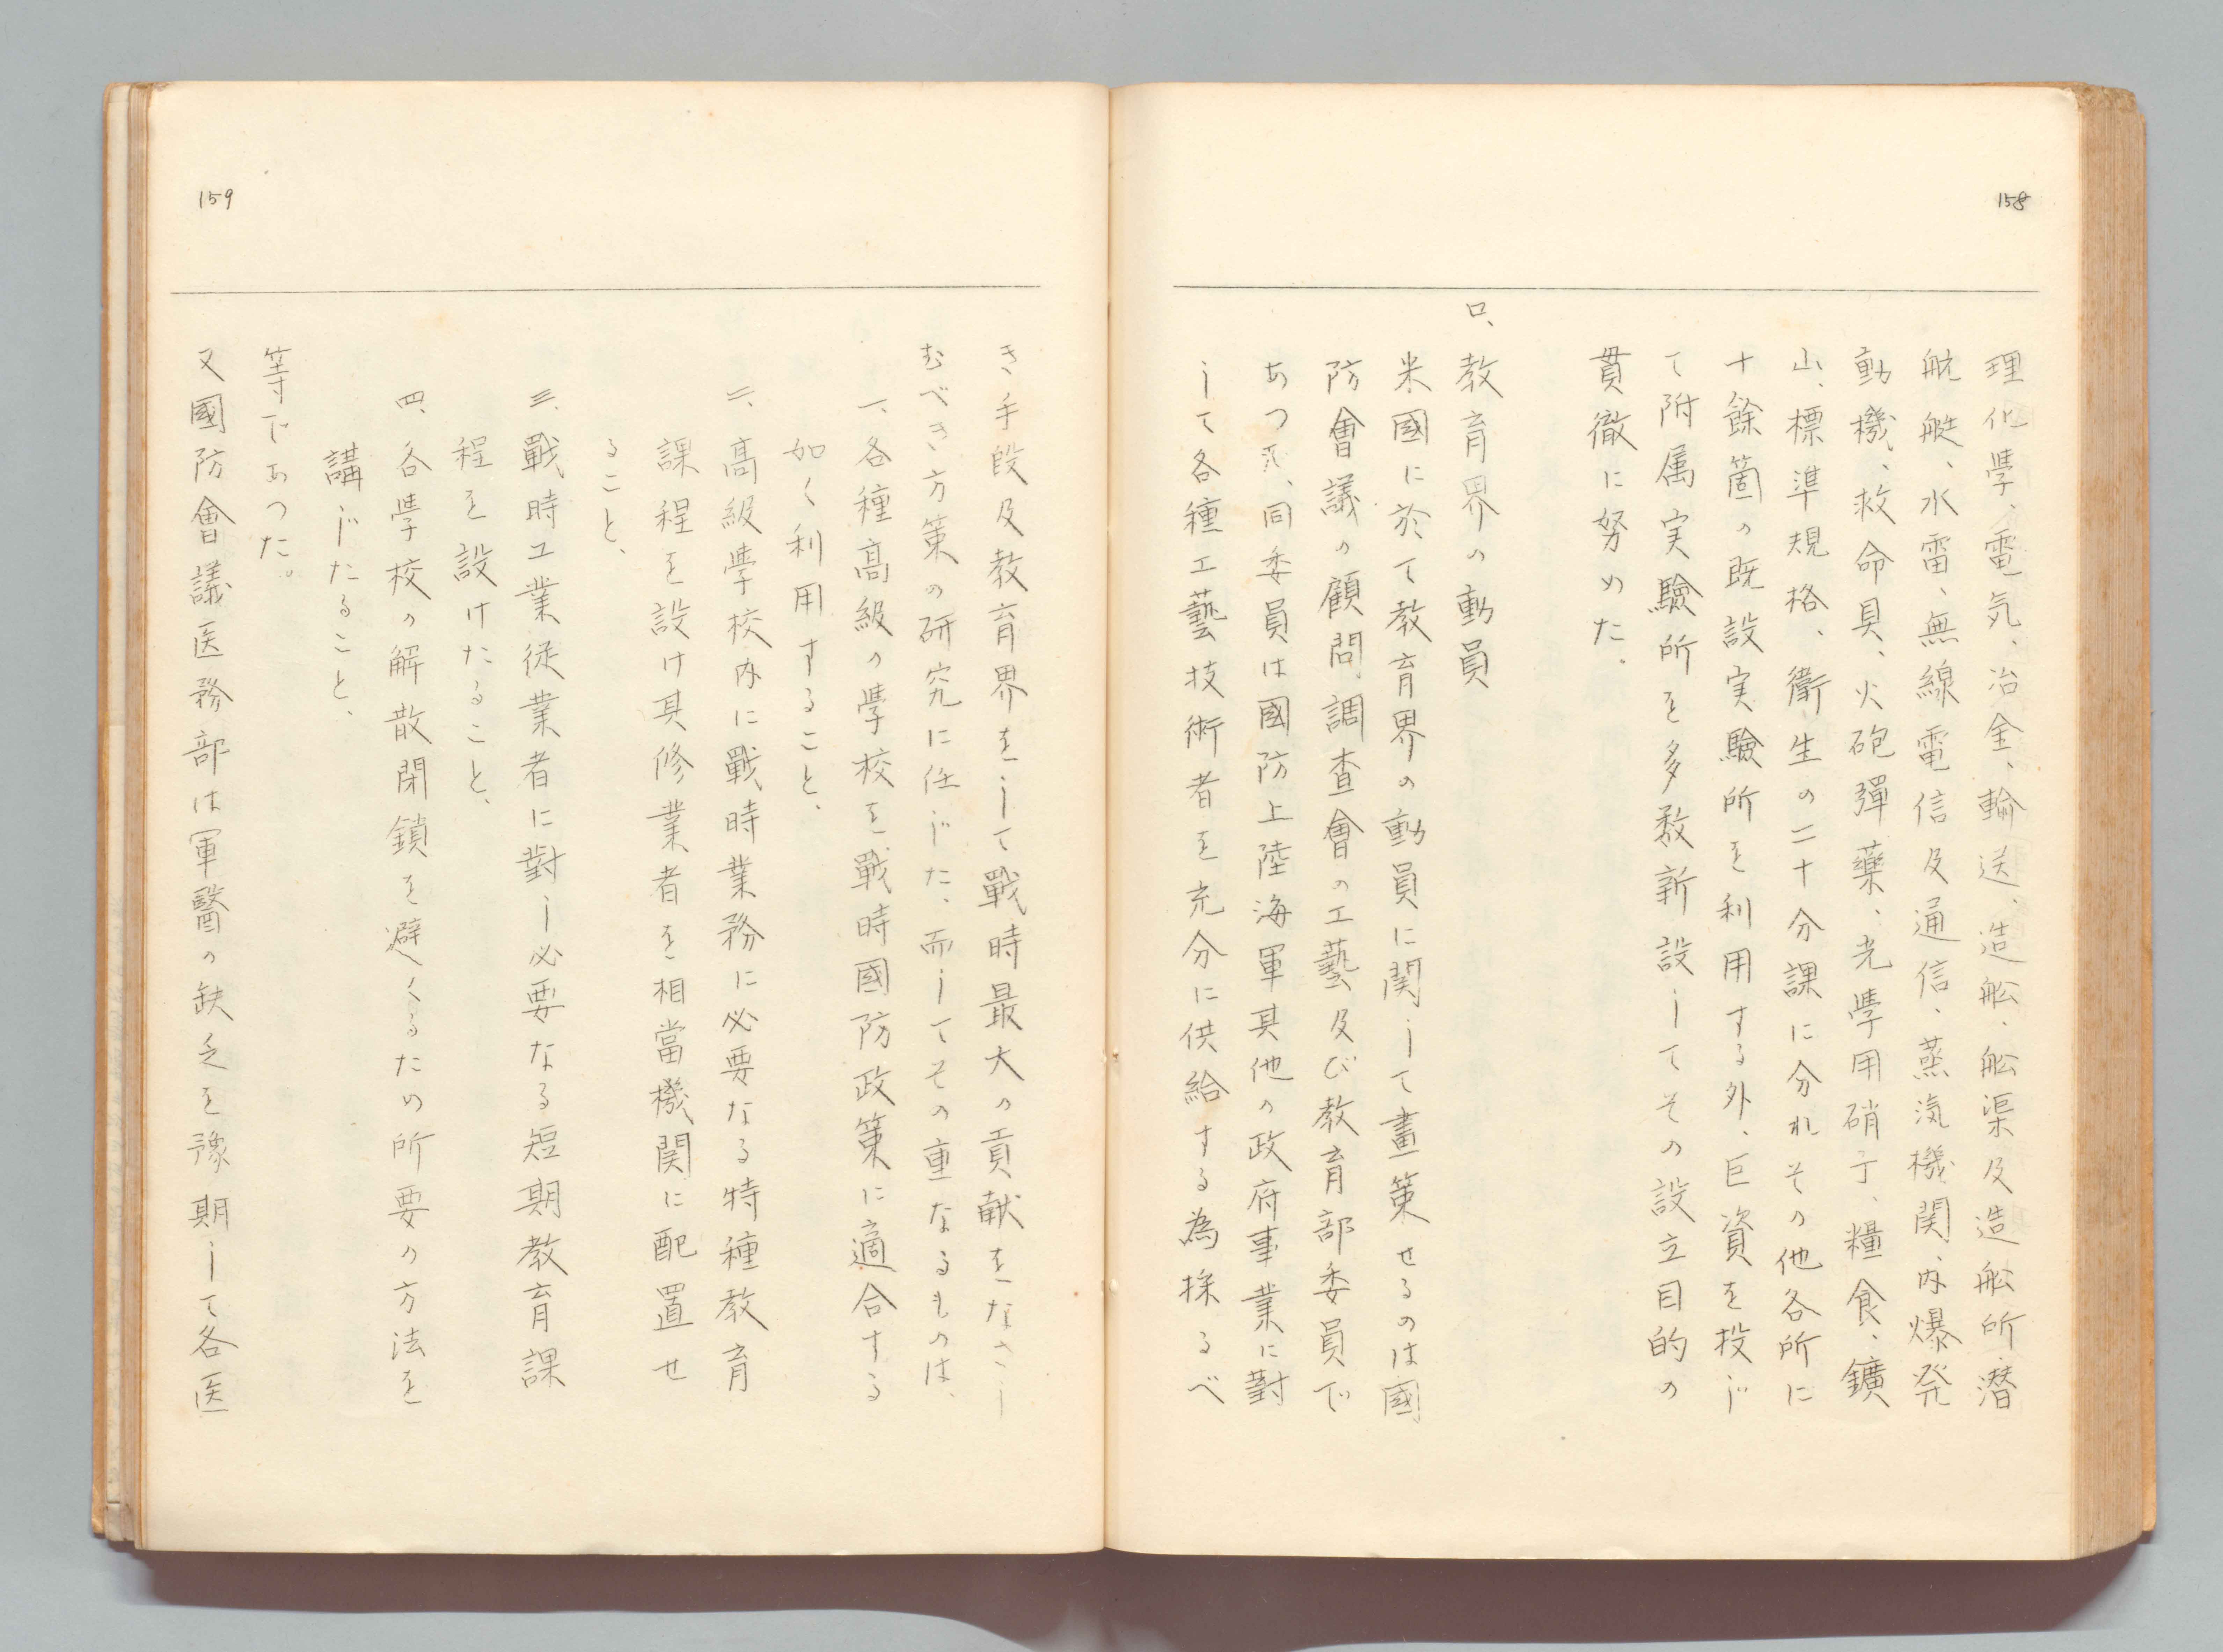 158
理化學、電気、冶金、輸送、造舩、舩渠及造舩所、潜
航艇、水雷、無線電信及通信、蒸汽機関、内爆発
動機、救命具、火砲彈藥、光學用硝子、糧食、鑛
山、標準規格、衛生の二十分課に分れその他各所に
十餘箇の既設実驗所を利用する外、巨資を投じ
て附属実驗所を多数新設してその設立目的の
貫徹に努めた。
ロ、教育界の動員
米國に於て教育界の動員に関して畫策せるのは國
防會議の顧問調査會の工藝及び教育部委員で
あつて、同委員は國防上陸海軍其他の政府事業に對
して各種工藝技術者を充分に供給する為採るべ
159
き手段及教育界をして戰時最大の貢献をなさし
むべき方策の研究に任じた、而してその重なるものは、
一、各種高級の學校を戰時國防政策に適合する
如く利用すること、
二、高級學校内に戰時業務に必要なる特種教育
課程を設け其修業者を相當機関に配置せ
ること、
三、戰時工業従業者に對し必要なる短期教育課
程を設けたること、
四、各學校の解散閉鎖を避くるため所要の方法を
講じたること、
等であつた。
又國防會議医務部は軍醫の缺乏を豫期して各医